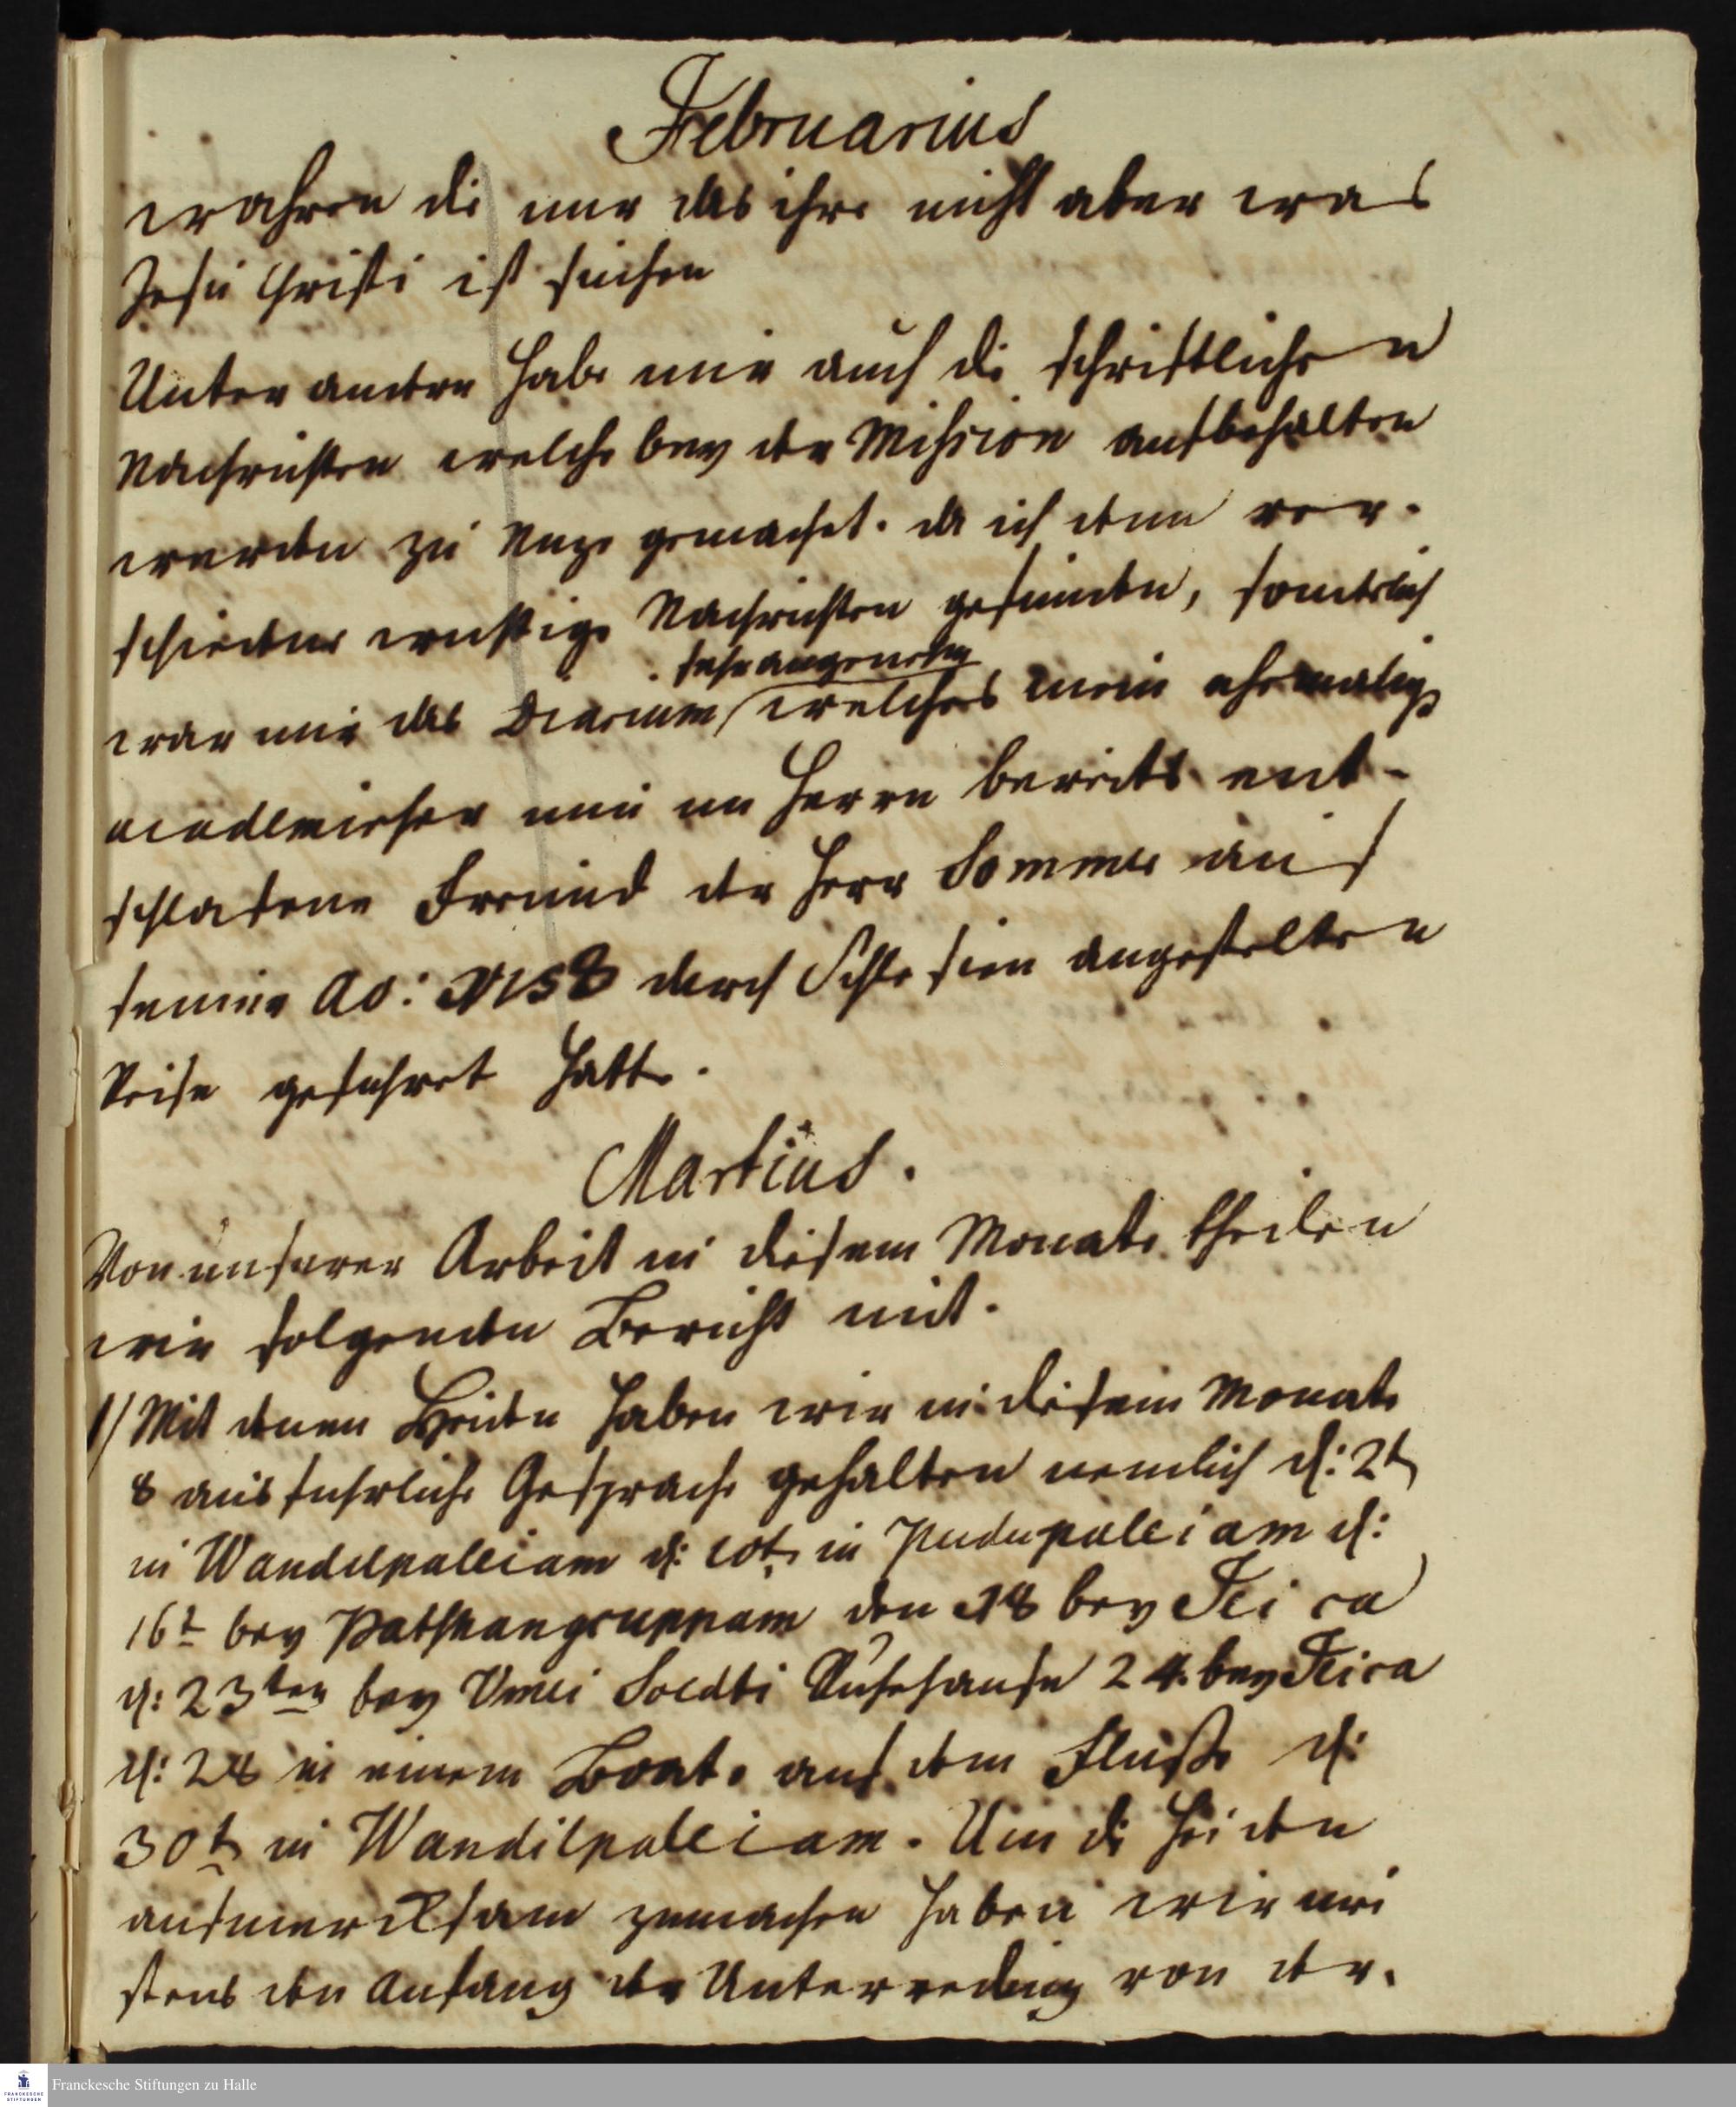 Februarius
wahren die nur das ihre nicht aber was
Jesu Christi ist suchen
Unter andern habe mir auch die schriftlichen
Nachrichten welche bey der Mission aufbehalten
werden zu Nuze gemachet. da ich denn ver-
schiedene wichtige Nachrichten gefunden, sonderlich
sehr angenehm
war mir das Diarium welches mein ehemaliger
academischer nun im Herrn bereits ent-
schlafene Freund der Herr Sommer auf
seiner Ao: 1758 durch Schlesien angestelten
Reise geführet hatte.
Martius.
Von unserer Arbeit in diesem Monate theilen
wir folgenden Bericht mit.
1/ Mit denen Heiden haben wir in diesem Monate
8 ausfuhrliche Gesprache gehalten nemlich d: 2t
in Wandelpaleiam d: 10t in Pudupaleiam d:
16t bey Patshangruppam den 18 bey Feira
d: 23ten bey Vmei Soedbi Ruhehause 24. bey Feira
d: 28 in einem Boate auf dem Fluße d:
30t in Wandilpaleiam. Um die Heiden
aufmercksam zumachen haben wir mei
stens den Anfang der Unterredung von der.
Franckesche Stiftungen zu Halle